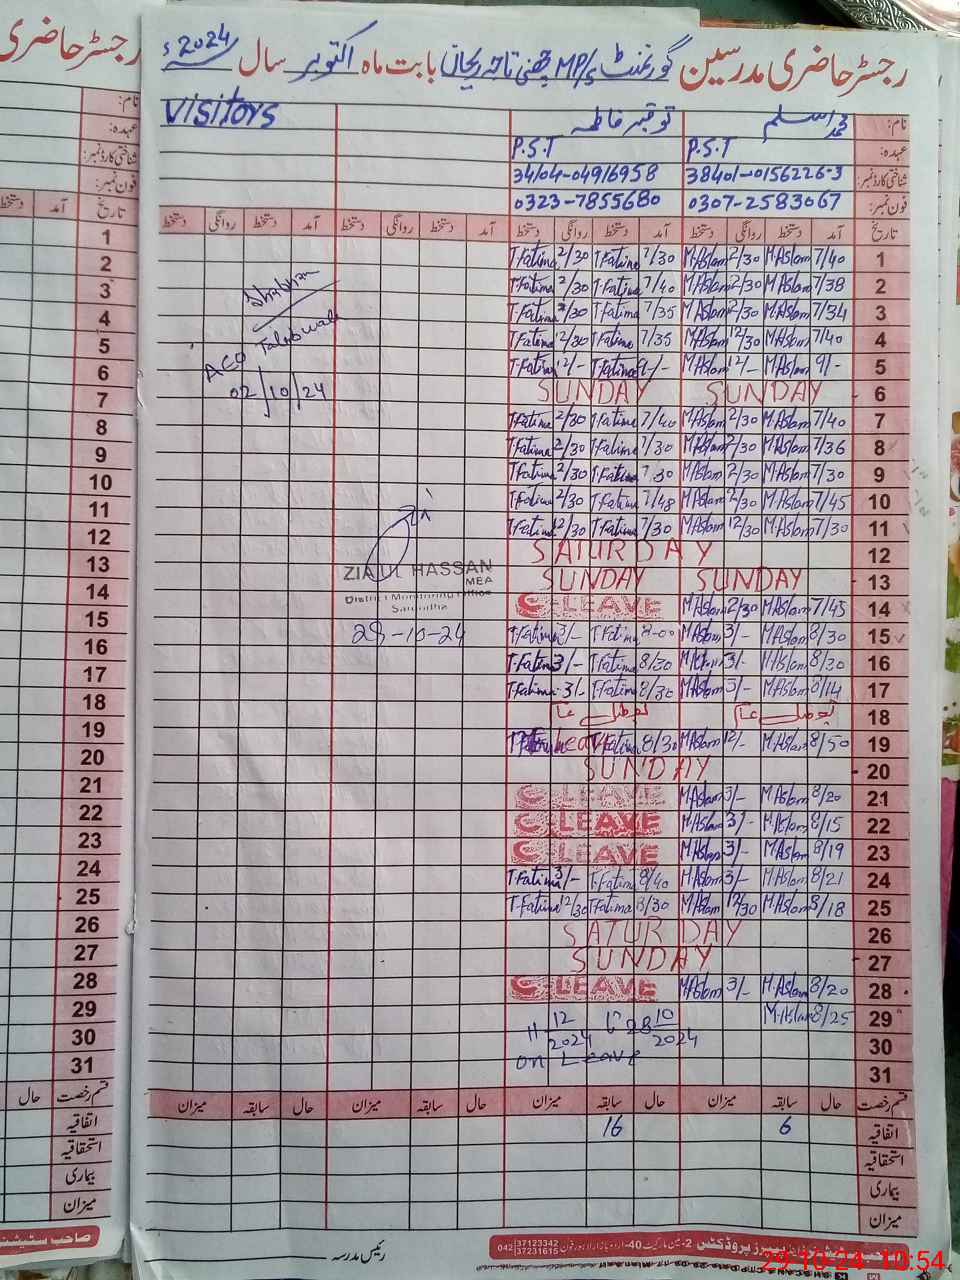 رجسٹر حاضری مدرسین گورنمنٹ MP/S بابت ماہ اکتوبر سال 2024ء
Visitors
نام: محمد اسلم توقیر فاطمہ
عہدہ: P.S.T P.S.T
شناختی کارڈ نمبر: 38401-0156226-3 34104-04916958
فون نمبر: 0307-2583067 0323-7855680
تاریخ آمد دستخط روانگی دستخط آمد دستخط روانگی دستخط آمد دستخط روانگی دستخط آمد دستخط روانگی دستخط
1 7/40 M.Aslam 2/30 M.Aslam 7/30 T.Fatima 2/30 T.Fatima
2 7/38 M.Aslam 2/30 M.Aslam 7/40 T.Fatima 2/30 T.Fatima
3 7/34 M.Aslam 2/30 M.Aslam 7/35 T.Fatima 2/30 T.Fatima
4 7/40 M.Aslam 12/30 M.Aslam 7/35 T.Fatima 12/30 T.Fatima
5 9/- M.Aslam 12/- M.Aslam 9/- T.Fatima 12/- T.Fatima
6 SUNDAY SUNDAY
7 7/40 M.Aslam 2/30 M.Aslam 7/40 T.Fatima 2/30 T.Fatima
8 7/36 M.Aslam 2/30 M.Aslam 7/30 T.Fatima 2/30 T.Fatima
9 7/30 M.Aslam 2/30 M.Aslam 7.30 T.Fatima 2/30 T.Fatima
10 7/45 M.Aslam 2/30 M.Aslam 7/48 T.Fatima 2/30 T.Fatima
11 7/30 M.Aslam 12/30 M.Aslam 7/30 T.Fatima 12/30 T.Fatima
12 SATURDAY
13 SUNDAY SUNDAY
14 7/45 M.Aslam 2/30 M.Aslam C-LEAVE
15 8/30 M.Aslam 3/- M.Aslam 8-00 T.Fatima 3/- T.Fatima
16 8/20 M.Aslam 3/- M.Aslam 8/30 T.Fatima 3/- T.Fatima
17 8/14 M.Aslam 3/- M.Aslam 8/30 T.Fatima 3/- T.Fatima
18 تعطیل عام تعطیل عام
19 8/50 M.Aslam 12/- M.Aslam 8/30 T.Fatima
20 SUNDAY
21 8/20 M.Aslam 3/- M.Aslam C-LEAVE
22 8/15 M.Aslam 3/- M.Aslam C-LEAVE
23 8/19 M.Aslam 3/- M.Aslam C-LEAVE
24 8/21 M.Aslam 3/- M.Aslam 8/40 T.Fatima 3/- T.Fatima
25 8/18 M.Aslam 12/30 M.Aslam 8/30 T.Fatima 12/30 T.Fatima
26 SATURDAY
27 SUNDAY
28 8/20 M.Aslam 3/- M.Aslam C-LEAVE
29 8/25 M.Aslam
30
31
ACO Talibwala
02/10/24
ZIA UL HASSAN
MEA
District Monitoring Office
Sargodha
29-10-24
12/2024 28 10/2024
on Leave
قسم رخصت حال سابقہ میزان حال سابقہ میزان حال سابقہ میزان حال سابقہ میزان
اتفاقیہ 6 16
استحقاقیہ
بیماری
میزان
رئیس مدرسہ
042 37123342
37231615
29-10-24 10:54
رجسٹر حاضری
نام:
عہدہ:
شناختی کارڈ نمبر:
فون نمبر:
تاریخ آمد دستخط
1
2
3
4
5
6
7
8
9
10
11
12
13
14
15
16
17
18
19
20
21
22
23
24
25
26
27
28
29
30
31
قسم رخصت حال
اتفاقیہ
استحقاقیہ
بیماری
میزان